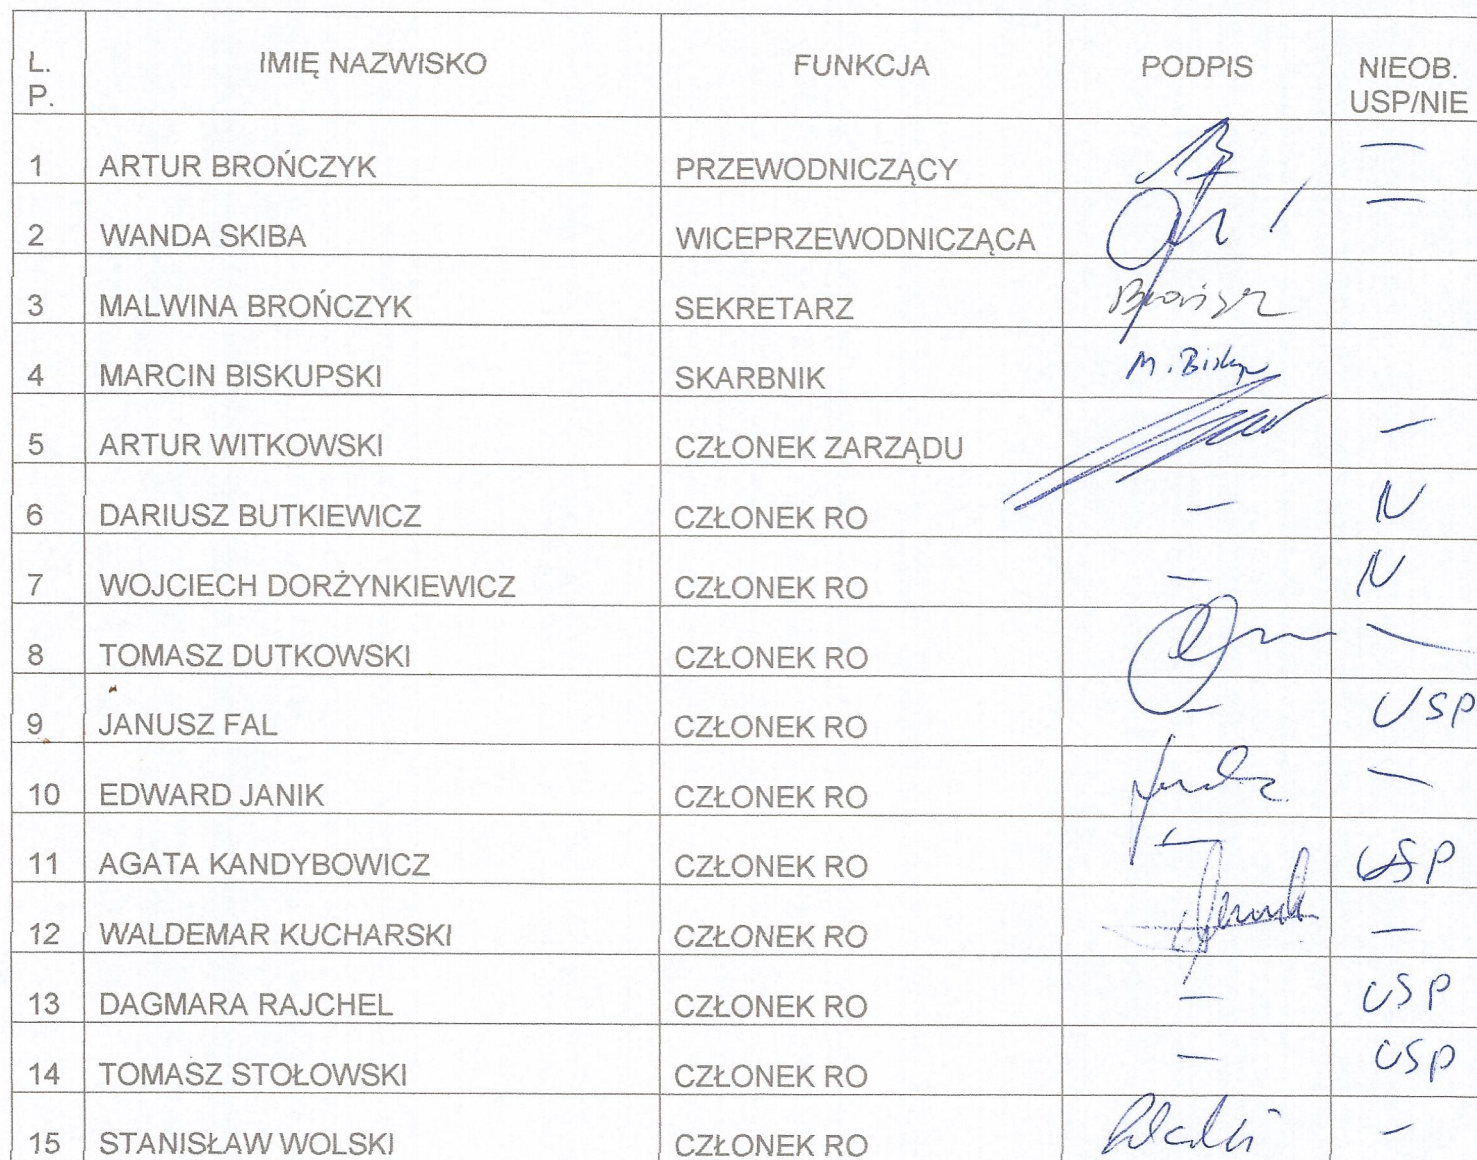 L. P. IMIĘ NAZWISKO FUNKCJA PODPIS NIEOB. USP/NIE
1 ARTUR BROŃCZYK PRZEWODNICZĄCY —
2 WANDA SKIBA WICEPRZEWODNICZĄCA —
3 MALWINA BROŃCZYK SEKRETARZ
4 MARCIN BISKUPSKI SKARBNIK M. Bisku
5 ARTUR WITKOWSKI CZŁONEK ZARZĄDU —
6 DARIUSZ BUTKIEWICZ CZŁONEK RO — N
7 WOJCIECH DORŻYNKIEWICZ CZŁONEK RO — N
8 TOMASZ DUTKOWSKI CZŁONEK RO —
9 JANUSZ FAL CZŁONEK RO — USP
10 EDWARD JANIK CZŁONEK RO —
11 AGATA KANDYBOWICZ CZŁONEK RO — USP
12 WALDEMAR KUCHARSKI CZŁONEK RO —
13 DAGMARA RAJCHEL CZŁONEK RO — USP
14 TOMASZ STOŁOWSKI CZŁONEK RO — USP
15 STANISŁAW WOLSKI CZŁONEK RO —